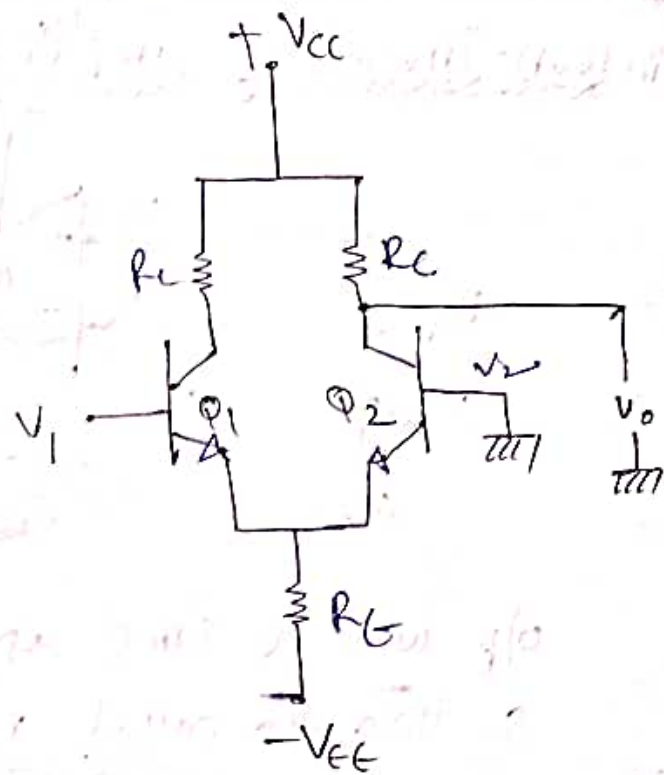 + VCC
RC
RC
V1
Q1
Q2
V2
Vo
RE
-VEE